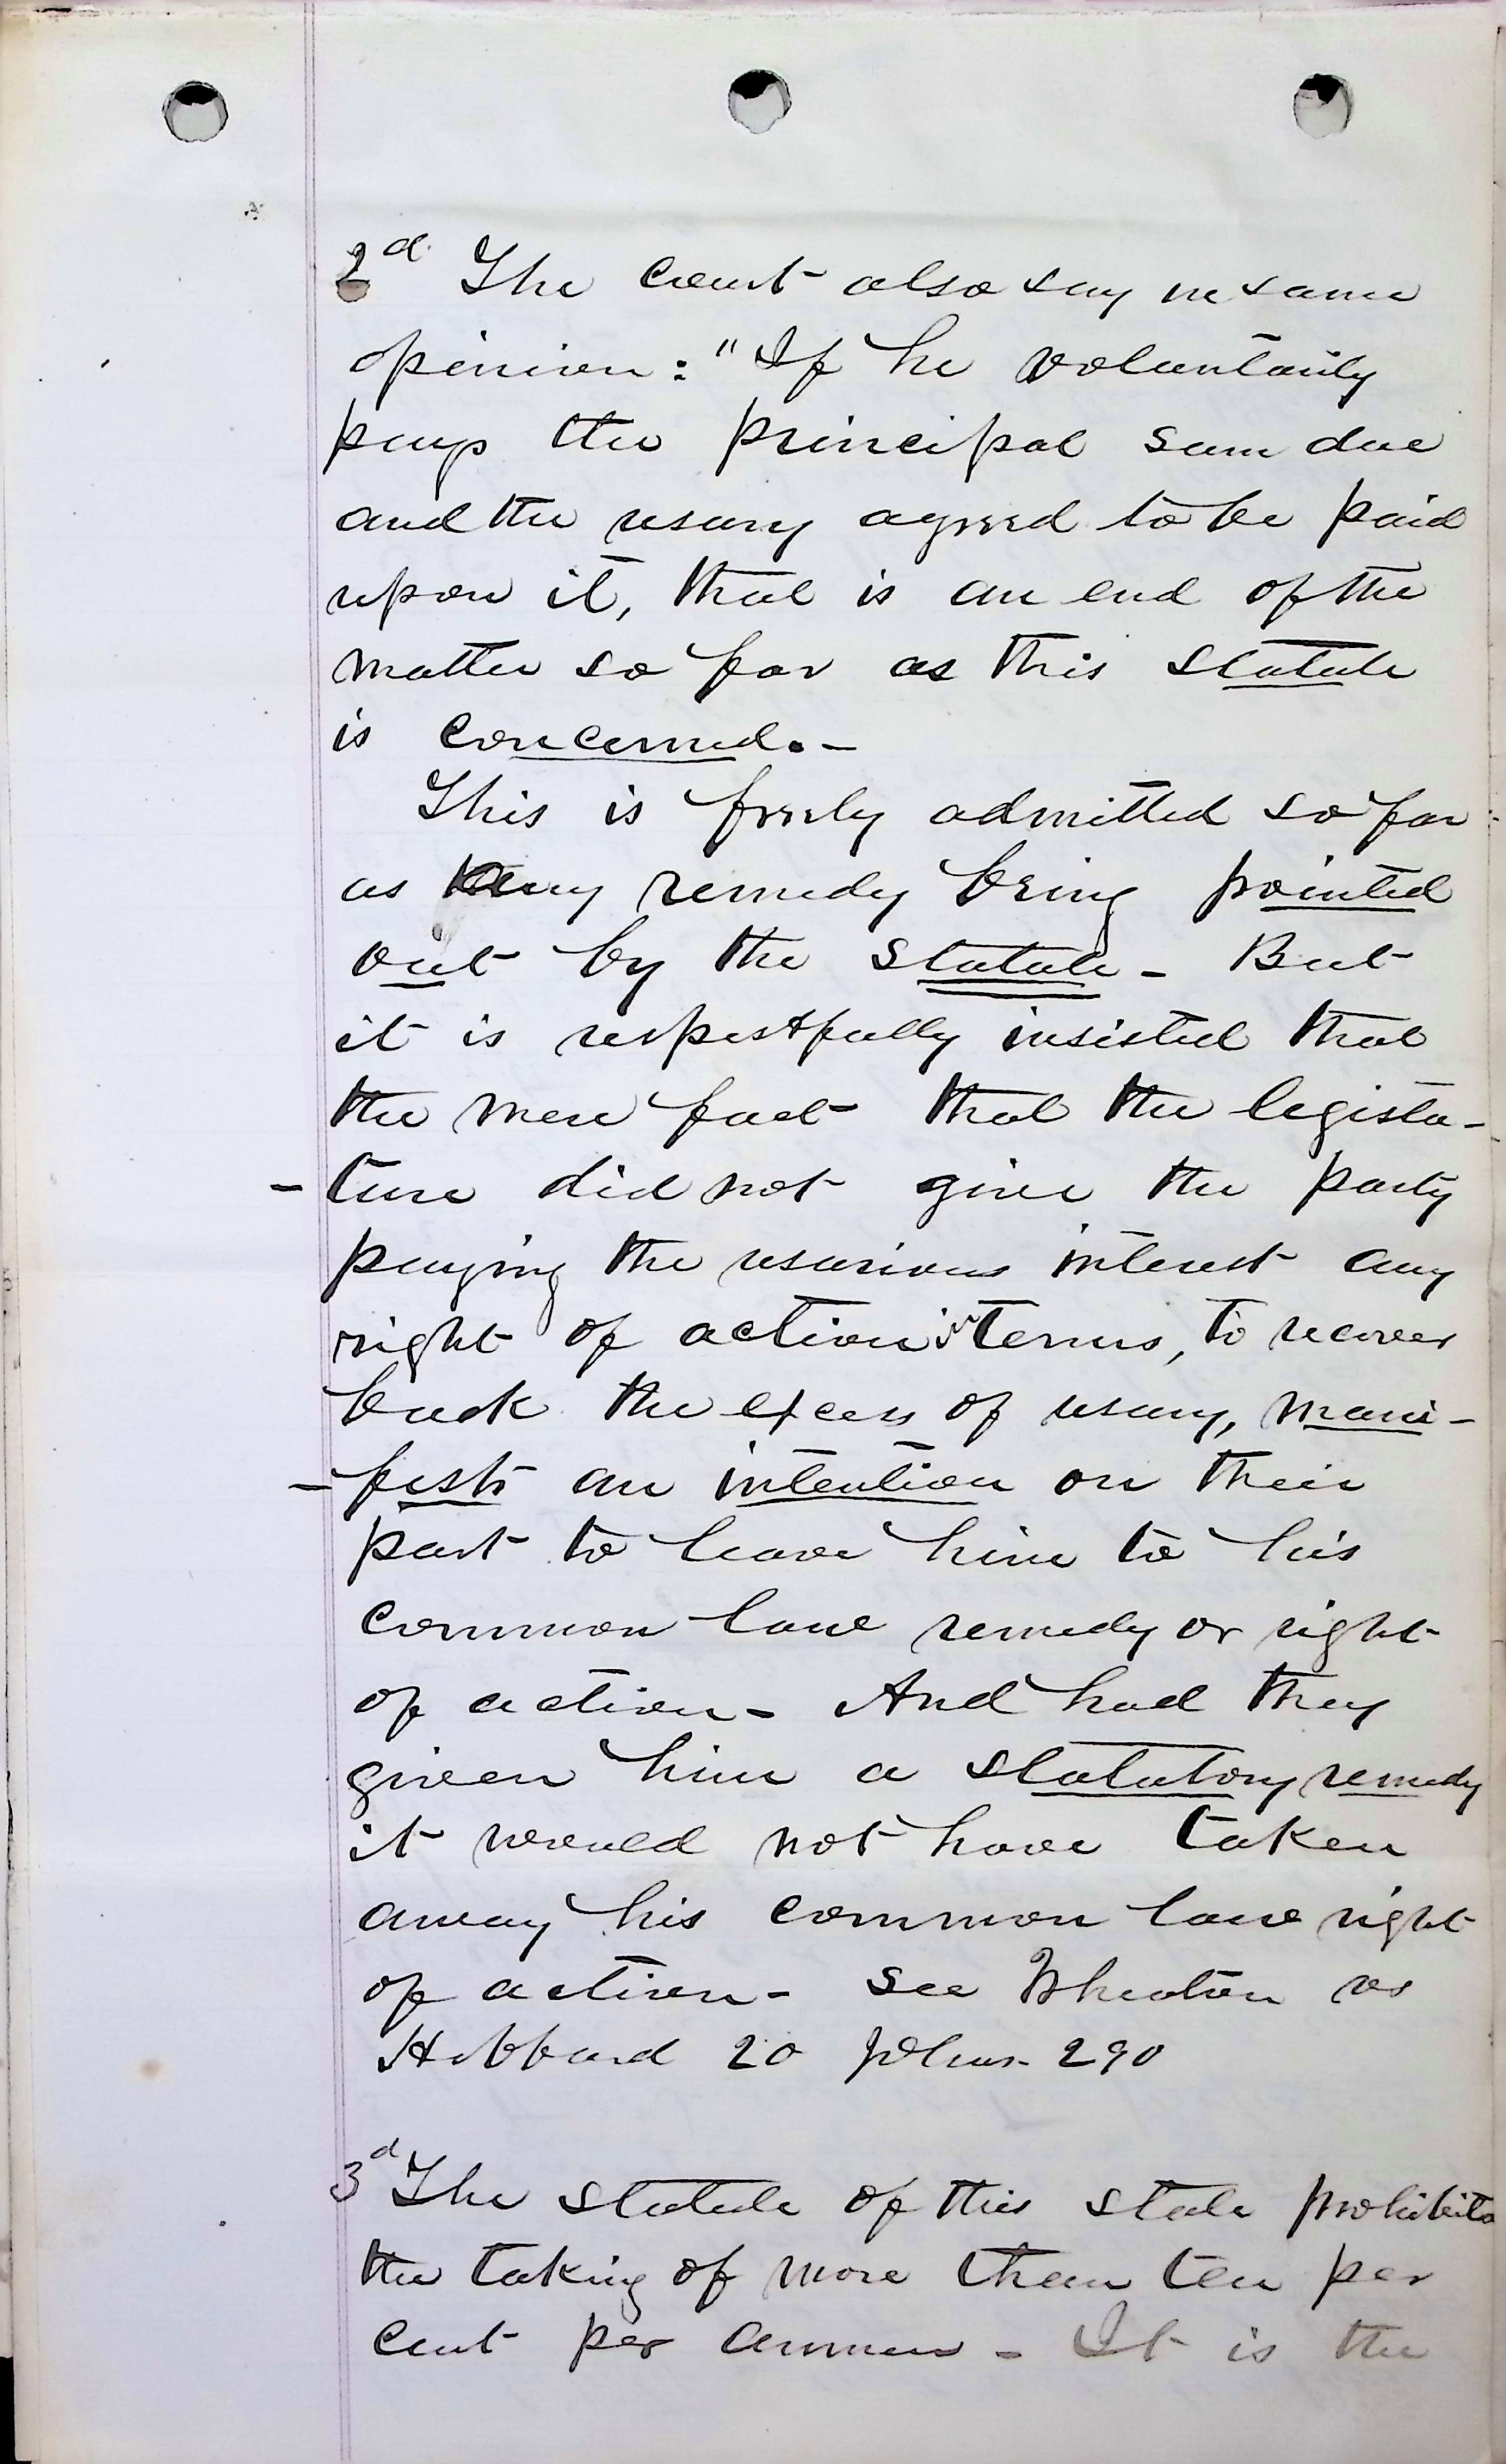 2d The Court also say in same
opinion: "If he voluntarily
pays the principal sum due
and the usury agreed to be paid
upon it, that is an end of the
matter so far as this statute
is concerned. -
This is freely admitted so far
as any remedy being pointed
out by the statute - But
it is respectfully insisted that
the mere fact that the legisla-
-ture did not give the party
paying the usurious interest any
right of action in terms, to recover
back the excess of usury, mani-
-fests an intention on their
part to leave him to his
common law remedy or right
of action - And had they
given him a statutory remedy
it would not have taken
away his common law right
of action - See Wheaton vs
Hibbard 20 Johns. 290
3d The statute of this state prohibits
the taking of more than ten per
cent per annum - It is the